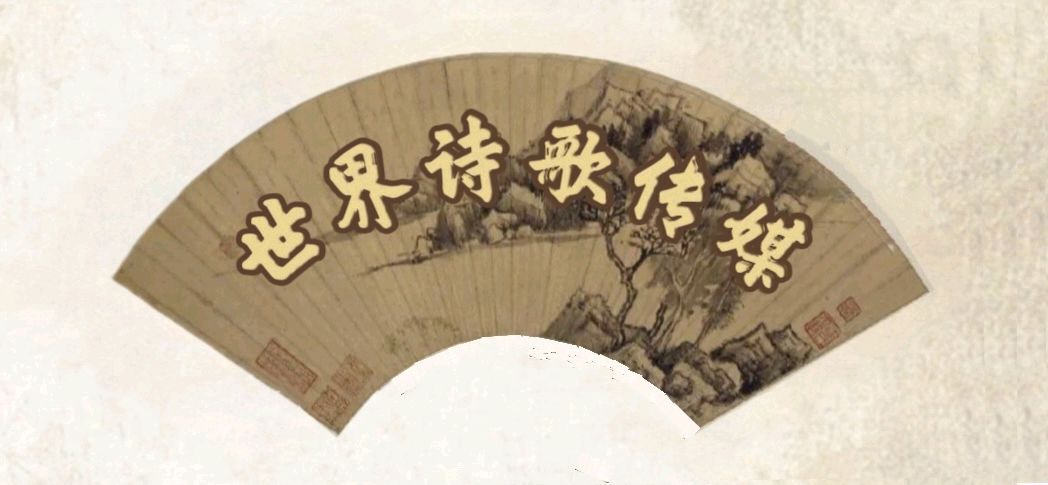 世界诗歌传媒